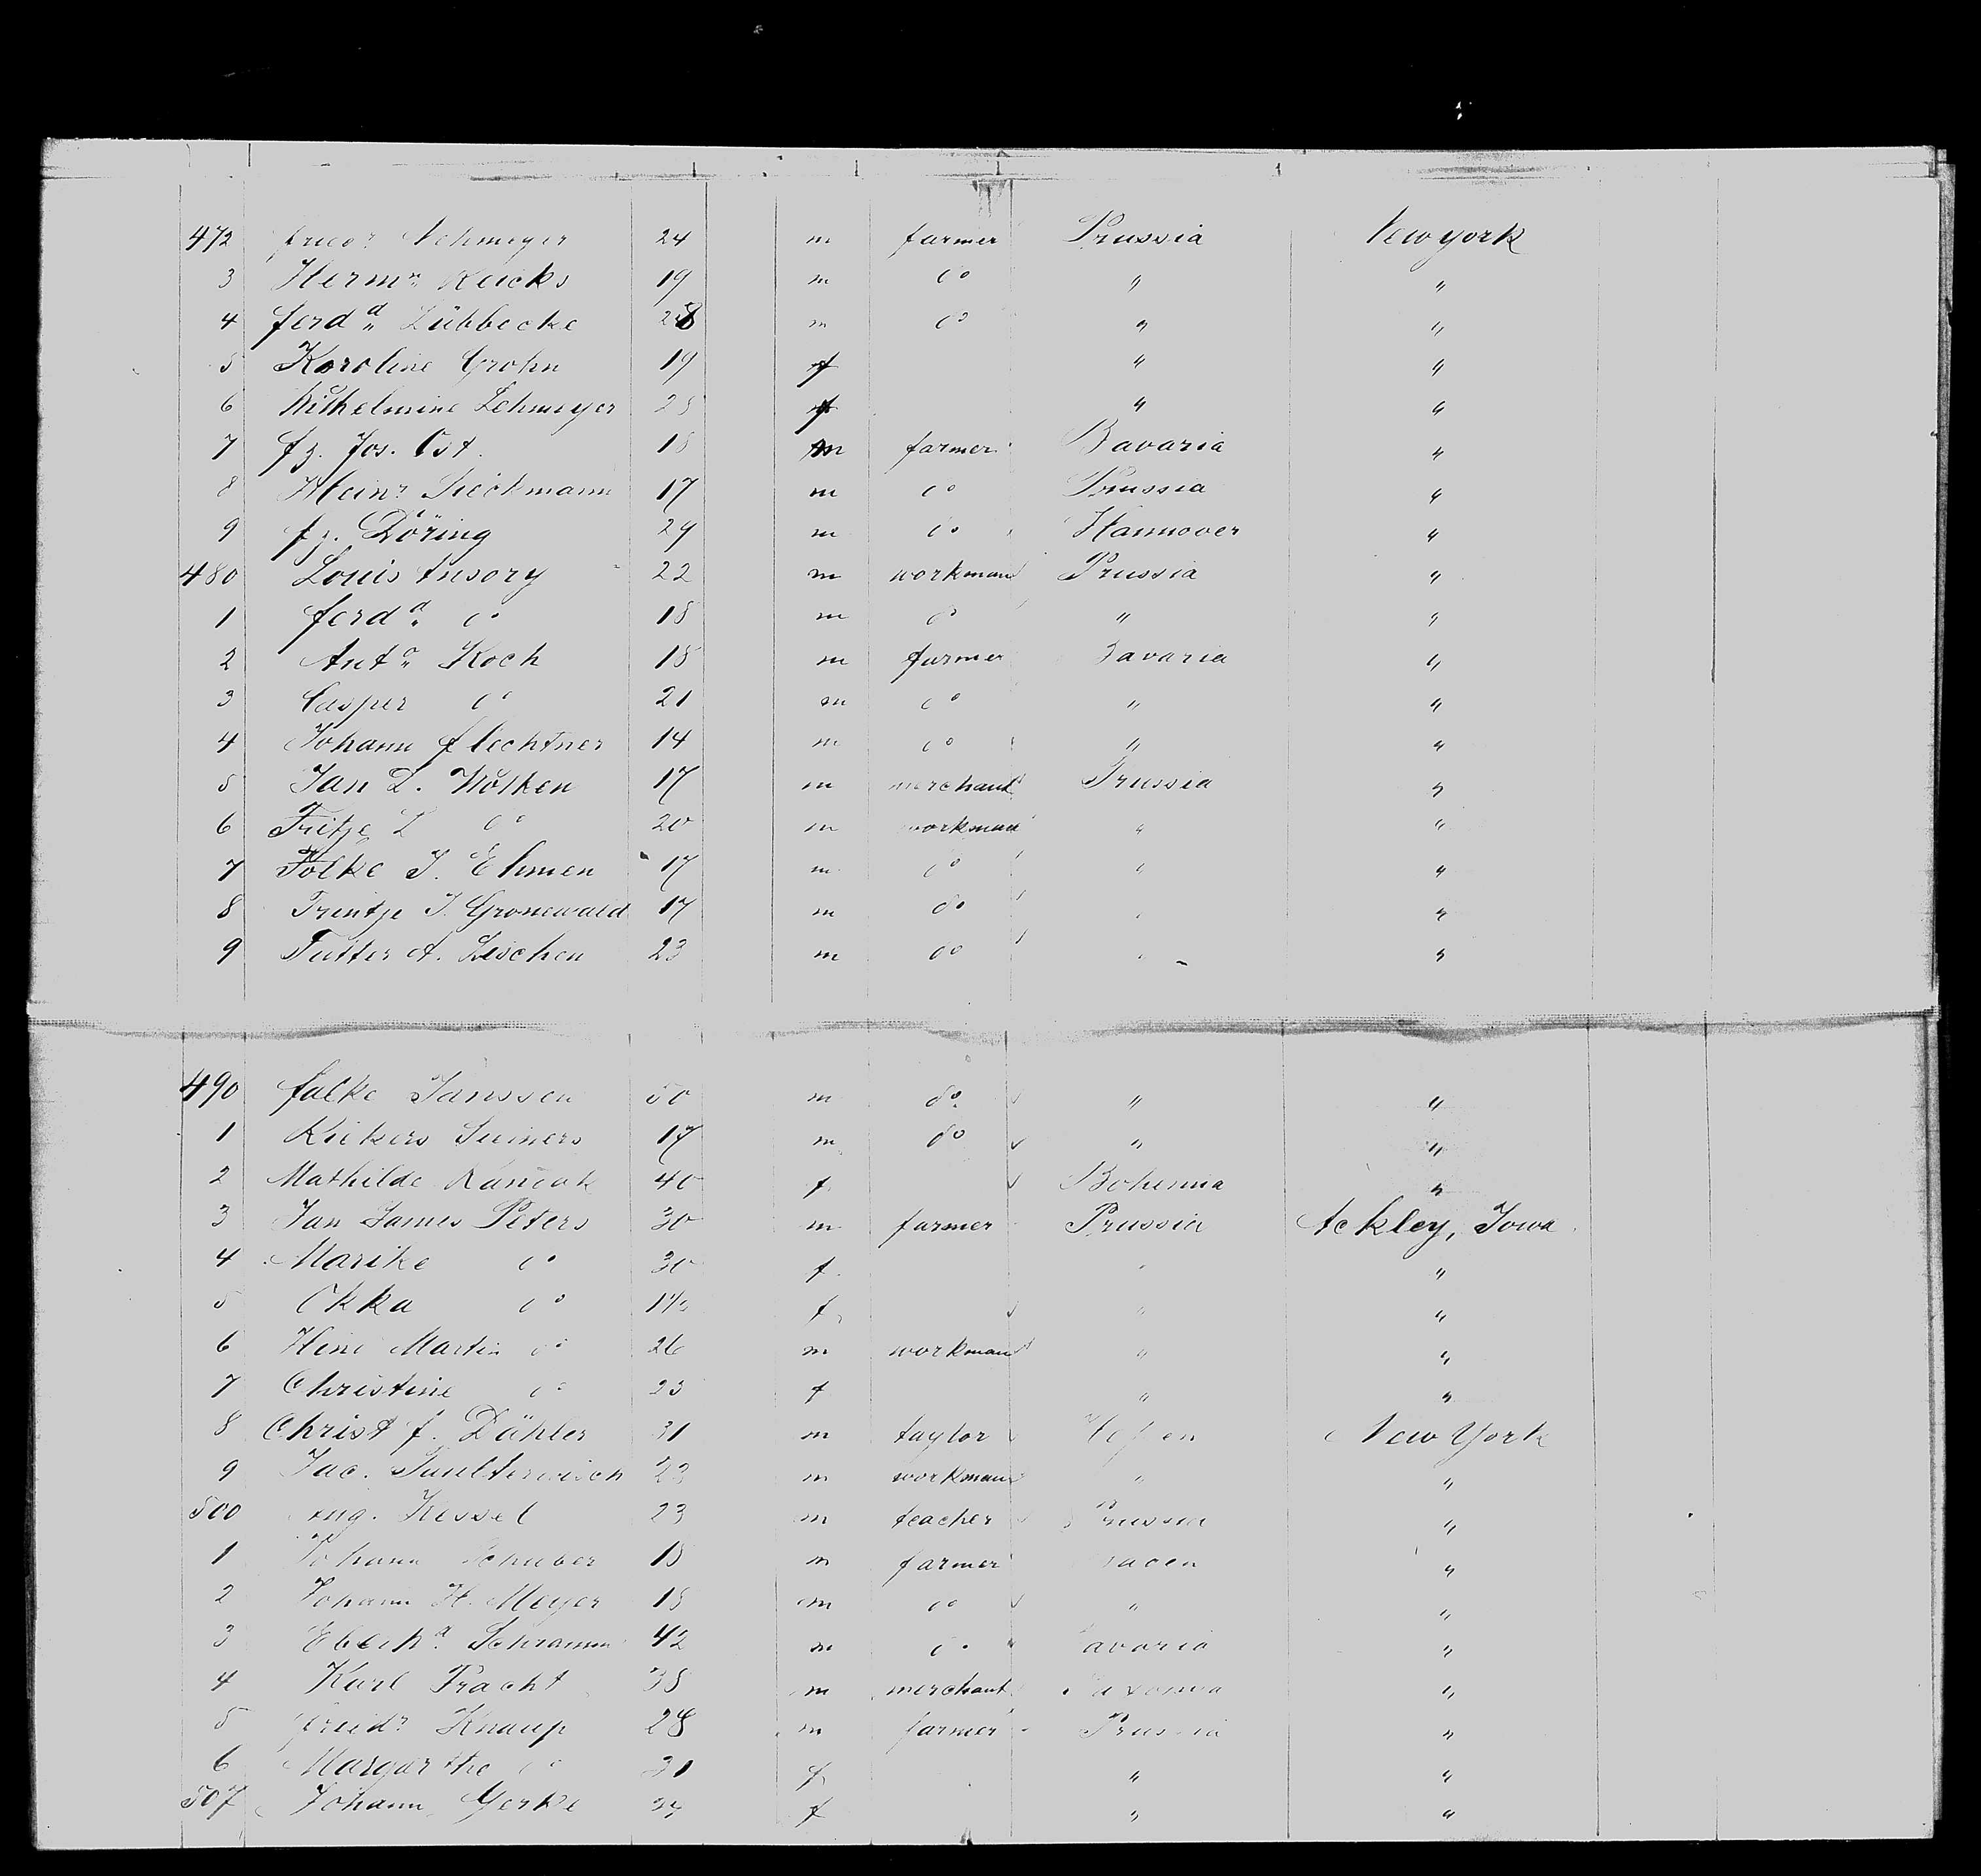 472 Friedr Lehmeyer 24 m farmer Prussia New york
3 Hermn Reicks 19 m do " "
4 ferdd Lübbecke 28 m do " "
5 Karoline Grohn 19 f " "
6 Wilhelmine Lehmeyer 25 f " "
7 fz. Jos. Ost. 18 m farmer Bavaria "
8 Heinr Sieckmann 17 m do Prussia "
9 fz. Döring 29 m do Hannover "
480 Louis Insory 22 m workman Prussia "
1 ferdd do 18 m do " "
2 Anto Koch 18 m farmer Bavaria "
3 Casper do 21 m do " "
4 Johann flechtner 14 m do " "
5 Jan L. Wolken 17 m merchant Prussia "
6 Fritje L do 20 m workman " "
7 Folke J. Ehmen 17 m do " "
8 Trintje J. Gronewald 17 m do " "
9 A. 23 m do " "
490 falke Janssen 50 m do " "
1 Rickers 17 m do " "
2 Mathilde 40 f Bohemia "
3 Jan James Peters 30 m farmer Prussia Ackley, Iowa
4 Marike do 30 f " "
5 Okka do 1½ f " "
6 Hinr Martin do 26 m workman " "
7 Christine do 23 f " "
8 Christ f. Dähler 31 m taylor Hessen New York
9 Jac. 23 m workman " "
500 Aug. Kessel 23 m teacher Prussia "
1 Johann Schuber 18 m farmer Baden "
2 Johann H. Meyer 18 m do " "
3 Eberhd Schramm 42 m do Bavaria "
4 Karl Pracht 38 m merchant Saxonia "
5 freidr Knaup 28 m farmer Prussia "
6 Margarthe do 31 f " "
507 Johann Gerke 34 f " "